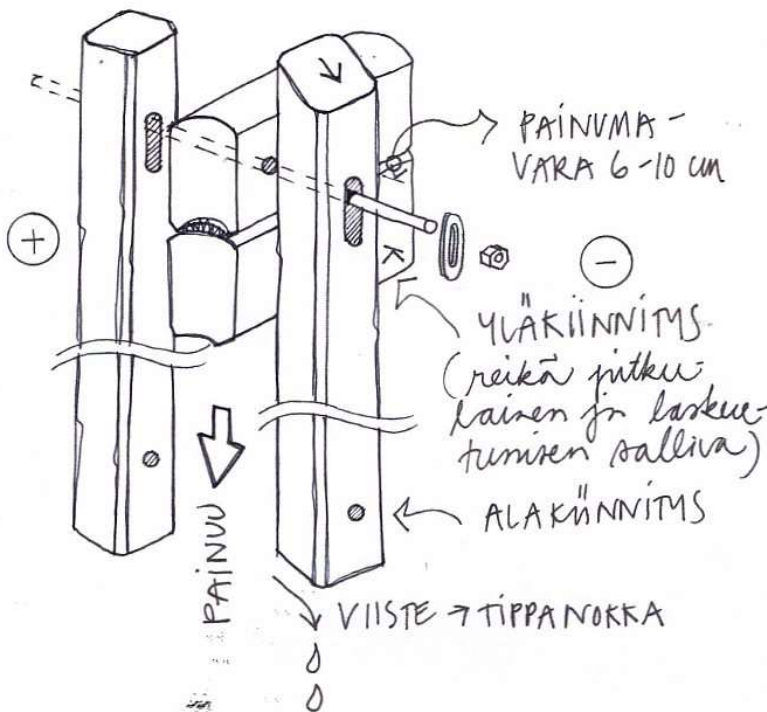 PAINUMA-
VARA 6-10 cm
+
K
-
YLÄKIINNITYS
(reikä pitku-
lainen ja laskeu-
tumisen salliva)
ALAKIINNITYS
PAINUU
VIISTE → TIPPANOKKA